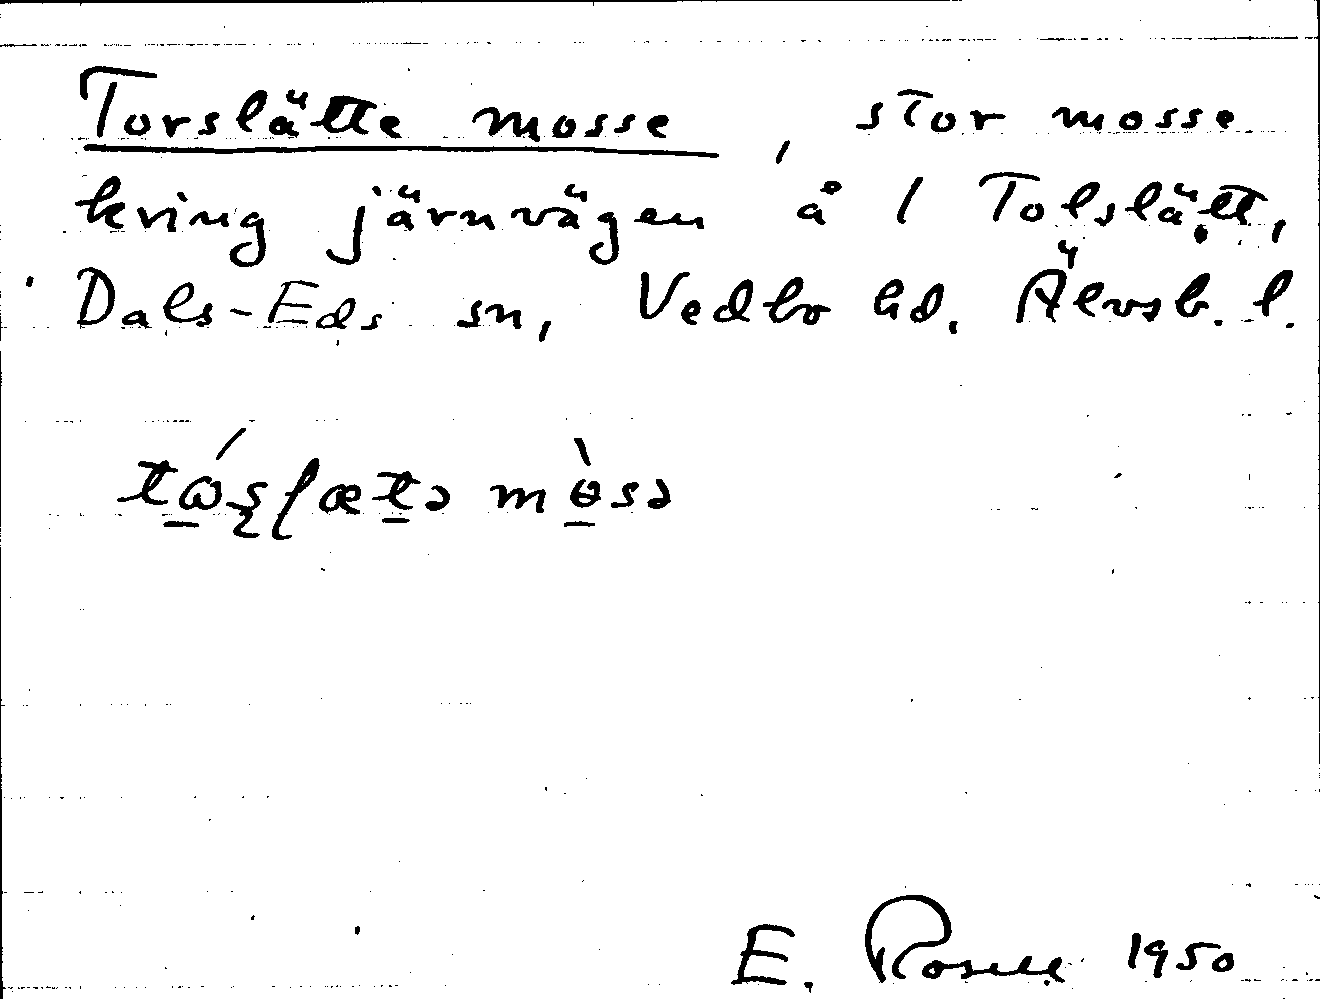 Torslätte mosse, stor mosse
kring järnvägen å 1 Tolslätt,
Dals-Eds sn, Vedbo hd. Älvsb. l.
E. Rosell 1950